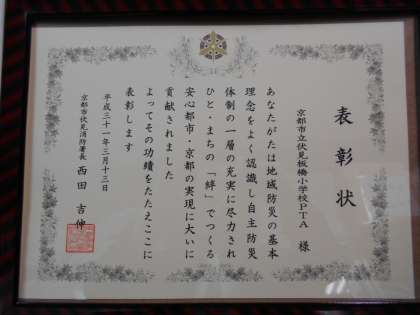 表彰状
京都市立伏見板橋小学校PTA 様
あなたがたは地域防災の基本
理念をよく認識し自主防災
体制の一層の充実に尽力され
ひと・まちの「絆」でつくる
安心都市・京都の実現に大いに
貢献されました
よってその功績をたたえここに
表彰します
平成三十一年三月十三日
京都市伏見消防署長 西田 吉伸